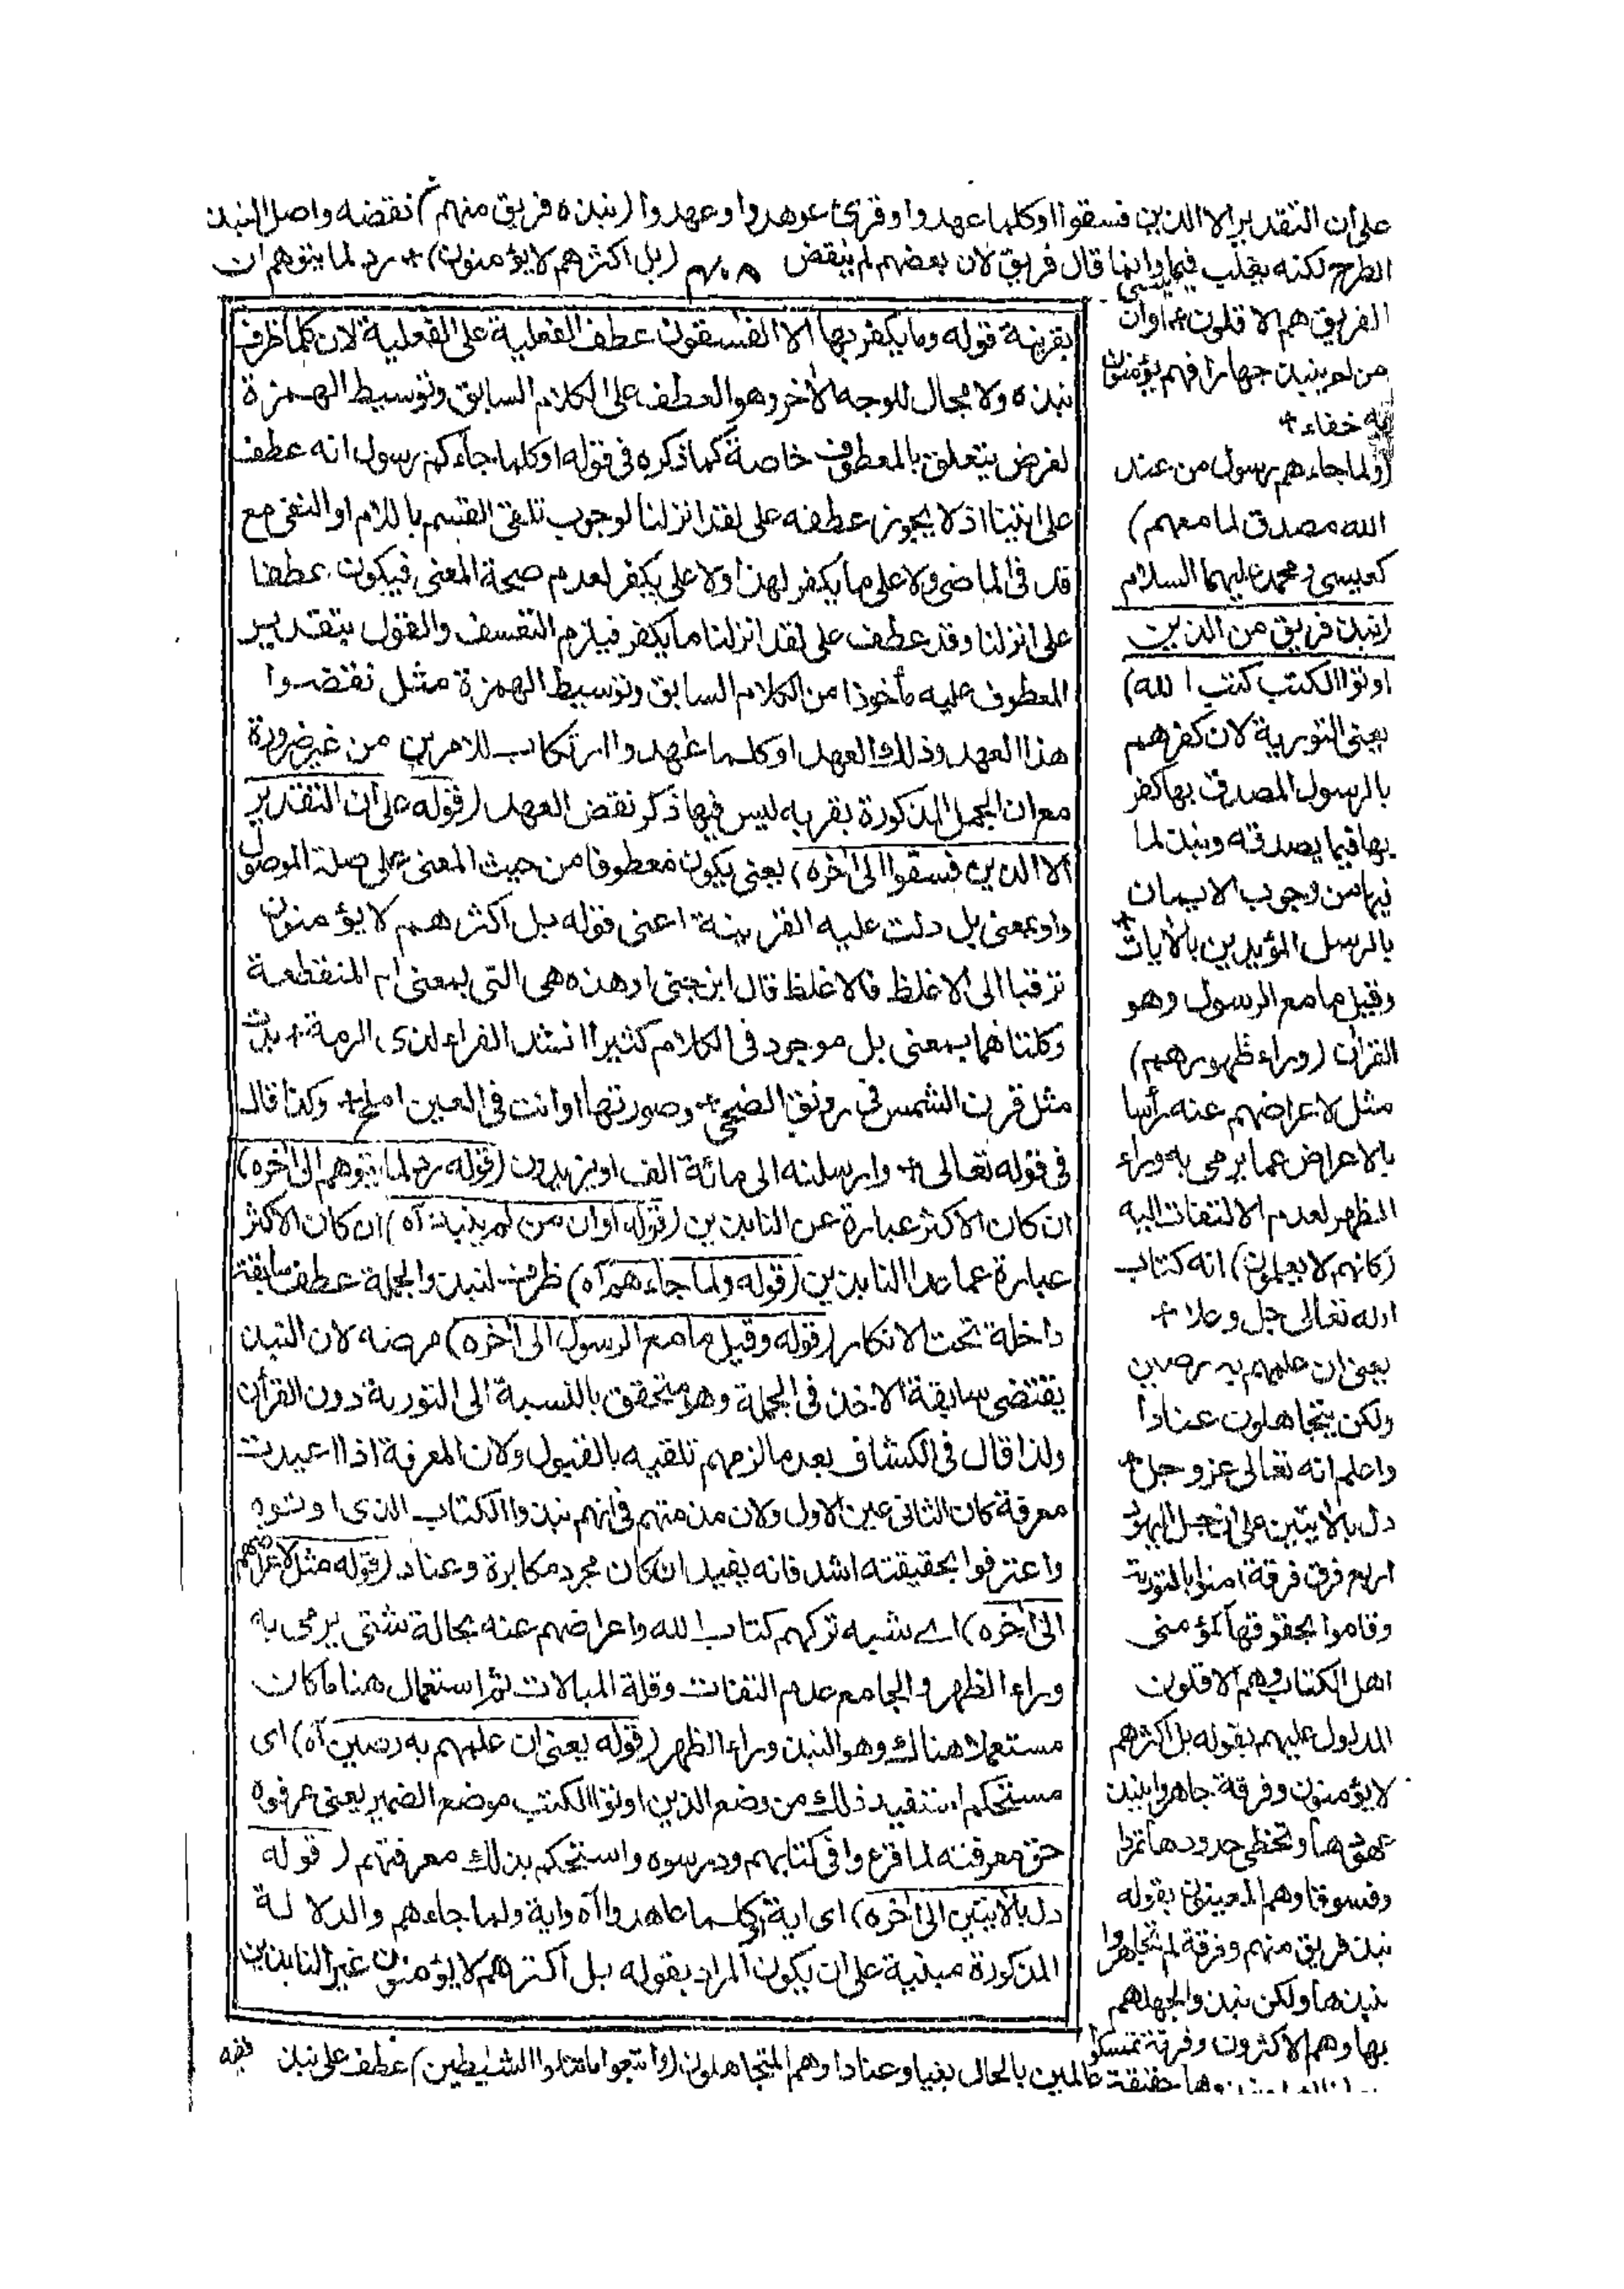 على أن التقدير إلا الذين فسقوا اوكلما عهدوا وقرئ عوهدوا وعهدوا (نبذه فريق منهم) نقضه واصل النبذ
الطرح لكنه يغلب فيما ينسى وانما قال فريق لان بعضهم لم ينقض (بل اكثرهم لا يؤمنون)+ رد لما يتوهم ان
الفريق هم الاقلون + اوان
من لم ينبذ جهارا فهم يؤمنون
به خفاء +
(ولما جاءهم رسول من عند
الله مصدق لما معهم)
كعيسى ومحمد عليهما السلام
(نبذ فريق من الذين
اوتوا الكتب كتب الله)
يعنى التورية لان كفرهم
بالرسول المصدق بها كفر
بها فيما يصدقه ونبذ لما
فيها من وجوب الايمان
بالرسل المؤيدين بالأيات +
وقيل ما مع الرسول وهو
القرأن (وراء ظهورهم)
مثل لاعراضهم عنه رأسا
بالاعراض عما يرمى به وراء
الظهر لعدم الالتفات اليه
(كانهم لا يعلمون) انه كتاب
الله تعالى جل وعلا +
يعنى ان علمهم به رصين
ولكن يتجاهلون عنادا
واعلم انه تعالى عز وجل +
دل بالأيتين على ان جل اليهود
اربع فرق فرقة امنوا بالتورية
وقاموا بحقوقها كمؤمنى
اهل الكتاب وهم الاقلون
المدلول عليهم بقوله بل اكثرهم
لا يؤمنون وفرقة جاهروا بنبذ
عهودها وتخطى حدودها تمردا
وفسوقا وهم المعينون بقوله
نبذ فريق منهم وفرقة لم يتجاهروا
بنبذها ولكن نبذوا لجهلهم
بها وهم الاكثرون وفرقة تمسكوا
بقرينة قوله وما يكفر بها الا الفسقون عطف الفعلية على الفعلية لان كلما ظرف
نبذه ولا مجال للوجه الأخر وهو العطف على الكلام السابق وتوسيط الهمزة
لغرض يتعلق بالمعطوف خاصة كما ذكره فى قوله اوكلما جاءكم رسول انه عطف
على اتينا اذ لا يجوز عطفه على لقد انزلنا لوجوب تلقى القسم باللام او النفى مع
قد فى الماضى ولا على ما يكفر لهذا ولا على يكفر لعدم صحة المعنى فيكون عطفا
على انزلنا وقد عطف على لقد انزلنا ما يكفر فيلزم التعسف والقول بتقدير
المعطوف عليه مأخوذا من الكلام السابق وتوسيط الهمزة مثل نقضوا
هذا العهد وذلك العهد اوكلما عهدوا ارتكاب للامرين من غير ضرورة
مع ان الجمل المذكورة بقربه ليس فيها ذكر نقض العهد (قوله على أن التقدير
الا الذين فسقوا الى أخره) يعنى يكون معطوفا من حيث المعنى على صلة الموصول
واو بمعنى بل دلت عليه القرينة اعنى قوله بل اكثرهم لا يؤمنون
ترقيا الى الاغلظ فالاغلظ قال ابن جنى او هذه هى التى بمعنى ام المنقطعة
وكلتاهما بمعنى بل موجود فى الكلام كثيرا انشد الفراء لذى الرمة + بدت
مثل قرن الشمس فى رونق الضحى + وصورتها او انت فى العين املح + وكذا قال
فى قوله تعالى + وارسلنه الى مائة الف او يزيدون (قوله رد لما يتوهم الى أخره)
ان كان الاكثر عبارة عن النابذين (قوله اوان من لم ينبذ أه) ان كان الاكثر
عبارة عما عدا النابذين (قوله ولما جاءهم أه) ظرف لنبذ والجملة عطف سابقة
داخلة تحت الانكار (قوله وقيل ما مع الرسول الى أخره) مرضه لان النبذ
يقتضى سابقة الاخذ فى الجملة وهو متحقق بالنسبة الى التورية دون القرأن
ولذا قال فى الكشاف بعد ما لزمهم تلقيه بالقبول ولان المعرفة اذا اعيدت
معرفة كان الثانى عين الاول ولان مذمتهم فى انهم نبذوا الكتاب الذى اوتوه
واعترفوا بحقيقته اشد فانه يفيد ان كان مجرد مكابرة وعناد (قوله مثل لاعراضهم
الى أخره) اے شبه تركهم كتاب الله واعراضهم عنه بحالة شئ يرمى به
وراء الظهر والجامع عدم التفات وقلة المبالات ثم استعمال هنا ما كان
مستعملا هناك وهو النبذ وراء الظهر (قوله يعنى ان علمهم به رصين أه) اى
مستحكم استفيد ذلك من وضع الذين اوتوا الكتب موضع الضمير يعنى عرفوه
حق معرفته لما قرءوا فى كتابهم ودرسوه واستحكم بذلك معرفتهم (قوله
دل بالأيتين الى أخره) اى اية اوكلما عاهدوا أه واية ولما جاءهم والدلالة
المذكورة مبنية على ان يكون المراد بقوله بل اكثرهم لا يؤمنون غير النابذين
حقيقة عالمين بالحال بغيا وعنادا وهم المتجاهلون (واتبعوا ما تتلوا الشيطين) عطف على نبذ